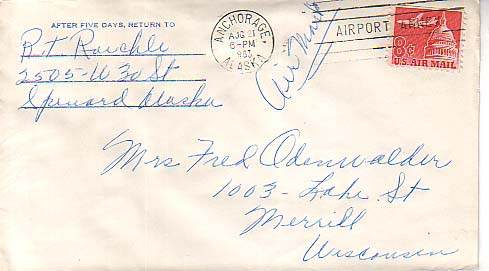 AFTER FIVE DAYS, RETURN TO
R. T. Raechle
2505-W. 30 St
Spenard Alaska
ANCHORAGE
AUG 21
6-PM
196
ALASKA
AIRPORT
Air Mail
8c
U.S. AIR MAIL
Mrs Fred Odenwalder
1003- Lake St
Merrill
Wisconsin